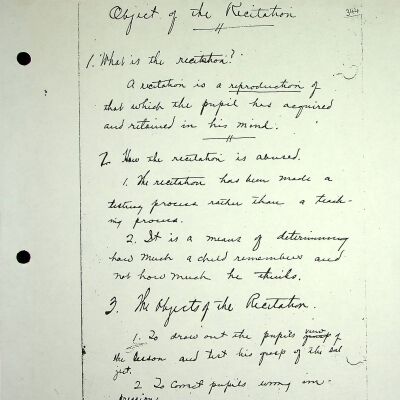 Object of the Recitation
344
1. What is the recitation?
A recitation is a reproduction of
that which the pupil has acquired
and retained in his mind.
2. How the recitation is abused.
1. The recitation has been made a
testing process rather than a teach-
ing process.
2. It is a means of determining
how much a child remembers and
not how much he thinks.
3. The Objects of the Recitation.
1. To draw out the pupils view of
the lesson and test his grasp of the sub
ject.
2. To Correct pupils wrong im-
pressions